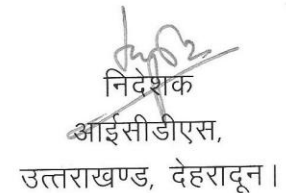 निदेशक
आईसीडीएस,
उत्तराखण्ड, देहरादून।